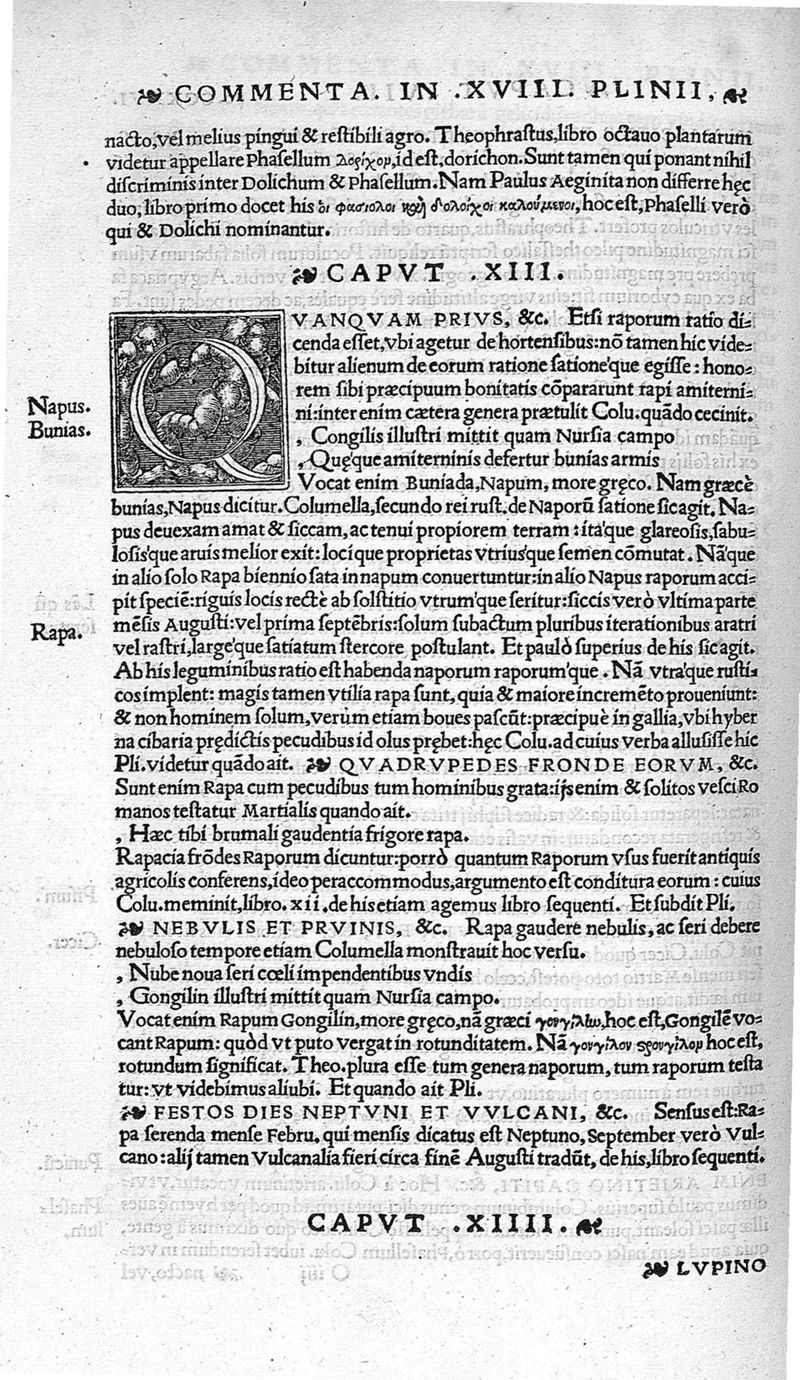 COMMENTA. IN .XVIII. PLINII.
nacto, vel melius pingui & restibili agro. Theophrastus, libro octauo plantarum
videtur appellare Phasellum δορίχον, id est, dorichon. Sunt tamen qui ponant nihil
discriminis inter Dolichum & Phasellum. Nam Paulus Aeginita non differre hęc
duo, libro primo docet his ὁι φασιολοι καὶ δολοίχοι καλούμενοι, hoc est, Phaselli verò
qui & Dolichi nominantur.
CAPVT .XIII.
QVANQVAM PRIVS, &c. Etsi raporum ratio di=
cenda esset, vbi agetur de hortensibus: nõ tamen hic vide=
bitur alienum de eorum ratione satione'que egisse: hono=
rem sibi præcipuum bonitatis cõpararunt rapi amiterni=
Napus.
ni: inter enim cætera genera prætulit Colu. quãdo cecinit.
Bunias.
, Congilis illustri mittit quam Nursia campo
, Quę'que amiterninis defertur bunias armis
Vocat enim Buniada, Napum, more gręco. Nam græcè
bunias, Napus dicitur. Columella, secundo rei rust. de Naporũ satione sic agit. Na=
pus deuexam amat & siccam, ac tenui propiorem terram: ita'que glareosis, sabu=
losis'que aruis melior exit: loci'que proprietas vtrius'que semen cõmutat. Nã'que
in alio solo Rapa biennio sata in napum conuertuntur: in alio Napus raporum acci=
pit speciẽ: riguis locis rectè ab solstitio vtrum'que seritur: siccis verò vltima parte
Rapa.
mẽsis Augusti: vel prima septẽbris: solum subactum pluribus iterationibus aratri
vel rastri, large'que satiatum stercore postulant. Et paulò superius de his sic agit.
Ab his leguminibus ratio est habenda naporum raporum'que. Nã vtra'que rusti=
cos implent: magis tamen vtilia rapa sunt, quia & maiore incremẽto proueniunt:
& non hominem solum, verùm etiam boues pascũt: præcipuè in gallia, vbi hyber
na cibaria prędictis pecudibus id olus prębet: hęc Colu. ad cuius verba allusisse hic
Pli. videtur quãdo ait. QVADRVPEDES FRONDE EORVM, &c.
Sunt enim Rapa cum pecudibus tum hominibus grata: ijs enim & solitos vesci Ro
manos testatur Martialis quando ait.
, Hæc tibi brumali gaudentia frigore rapa.
Rapacia frõdes Raporum dicuntur: porrò quantum Raporum vsus fuerit antiquis
agricolis conferens, ideo peraccommodus, argumento est conditura eorum: cuius
Colu. meminit, libro. xii. de his etiam agemus libro sequenti. Et subdit Pli.
NEBVLIS ET PRVINIS, &c. Rapa gaudere nebulis, ac seri debere
nebuloso tempore etiam Columella monstrauit hoc versu.
, Nube noua seri cœli impendentibus vndis
, Gongilin illustri mittit quam Nursia campo.
Vocat enim Rapum Gongilin, more gręco, nã græci γογγίλω, hoc est, Gongilẽ vo=
cant Rapum: quòd vt puto vergat in rotunditatem. Nã γογγίλον hoc est,
rotundum significat. Theo. plura esse tum genera naporum, tum raporum testa
tur: vt videbimus aliubi. Et quando ait Pli.
FESTOS DIES NEPTVNI ET VVLCANI, &c. Sensus est: Ra=
pa serenda mense Febru. qui mensis dicatus est Neptuno, September verò Vul=
cano: alij tamen Vulcanalia fieri circa finẽ Augusti tradũt, de his, libro sequenti.
CAPVT .XIIII.
LVPINO